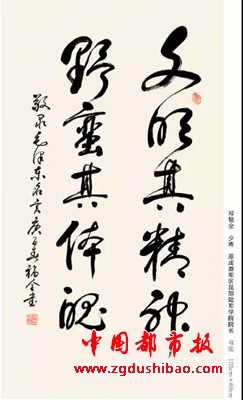 文明其精神
野蛮其体魄
敬录毛泽东名言庚寅春福全书
邓福全 少将 原成都军区昆明陆军学院院长 书法 135cm×69cm
中国都市报
www.zgdushibao.com